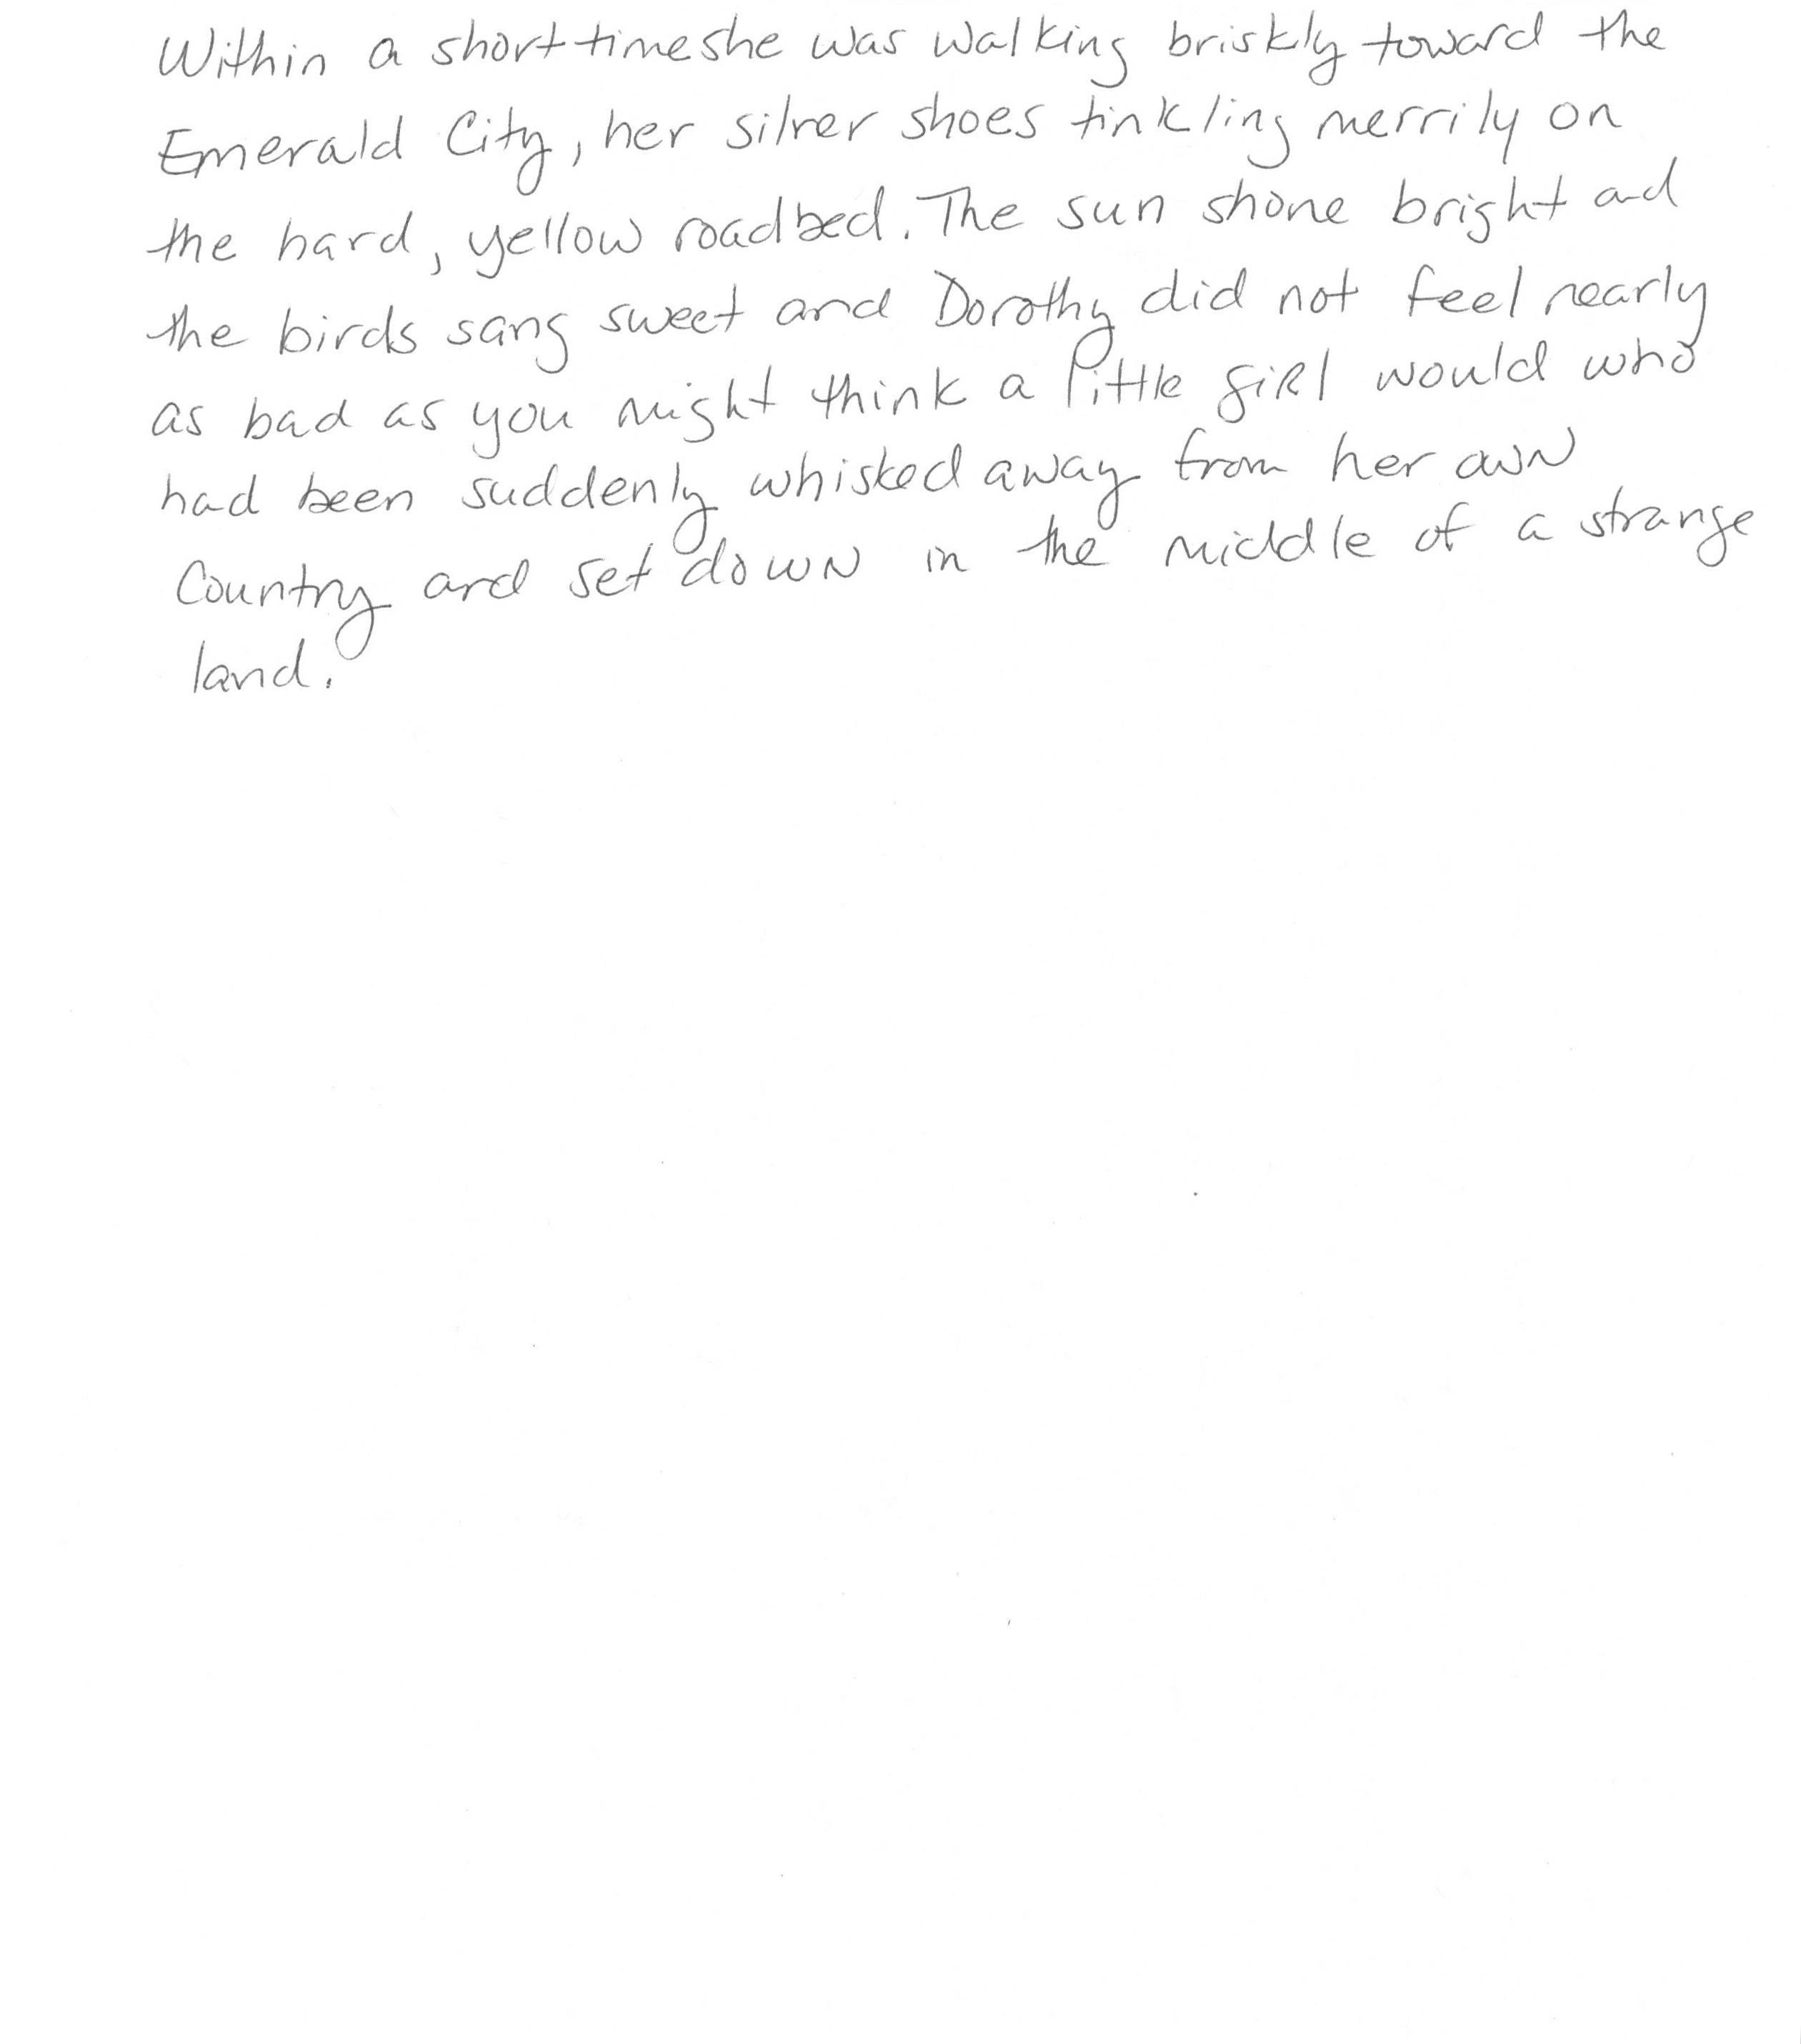 Within a short time she was walking briskly toward the
Emerald City, her silver shoes tinkling merrily on
the hard, yellow roadbed. The sun shone bright and
the birds sang sweet and Dorothy did not feel nearly
as bad as you might think a little girl would who
had been suddenly whisked away from her own
Country and set down in the middle of a strange
land.